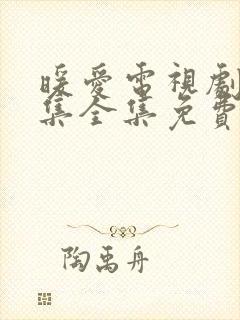 暖愛電視劇
集全集免費
陶禹舟